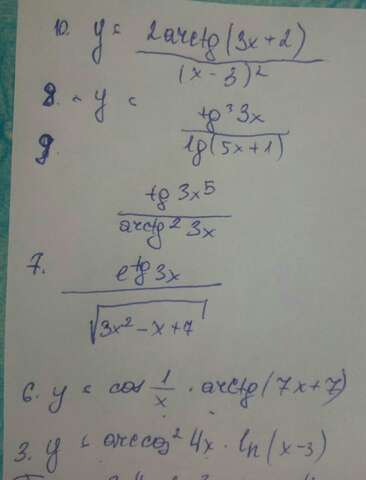 10. y = 2arctg(3x+2) / (x-3)²
8. y = tg³3x / lg(5x+1)
9. tg3x⁵ / arctg²3x
7. e^tg3x / √3x²-x+7
6. y = cos 1/x · arctg(7x+7)
3. y = arccos²4x · ln(x-3)